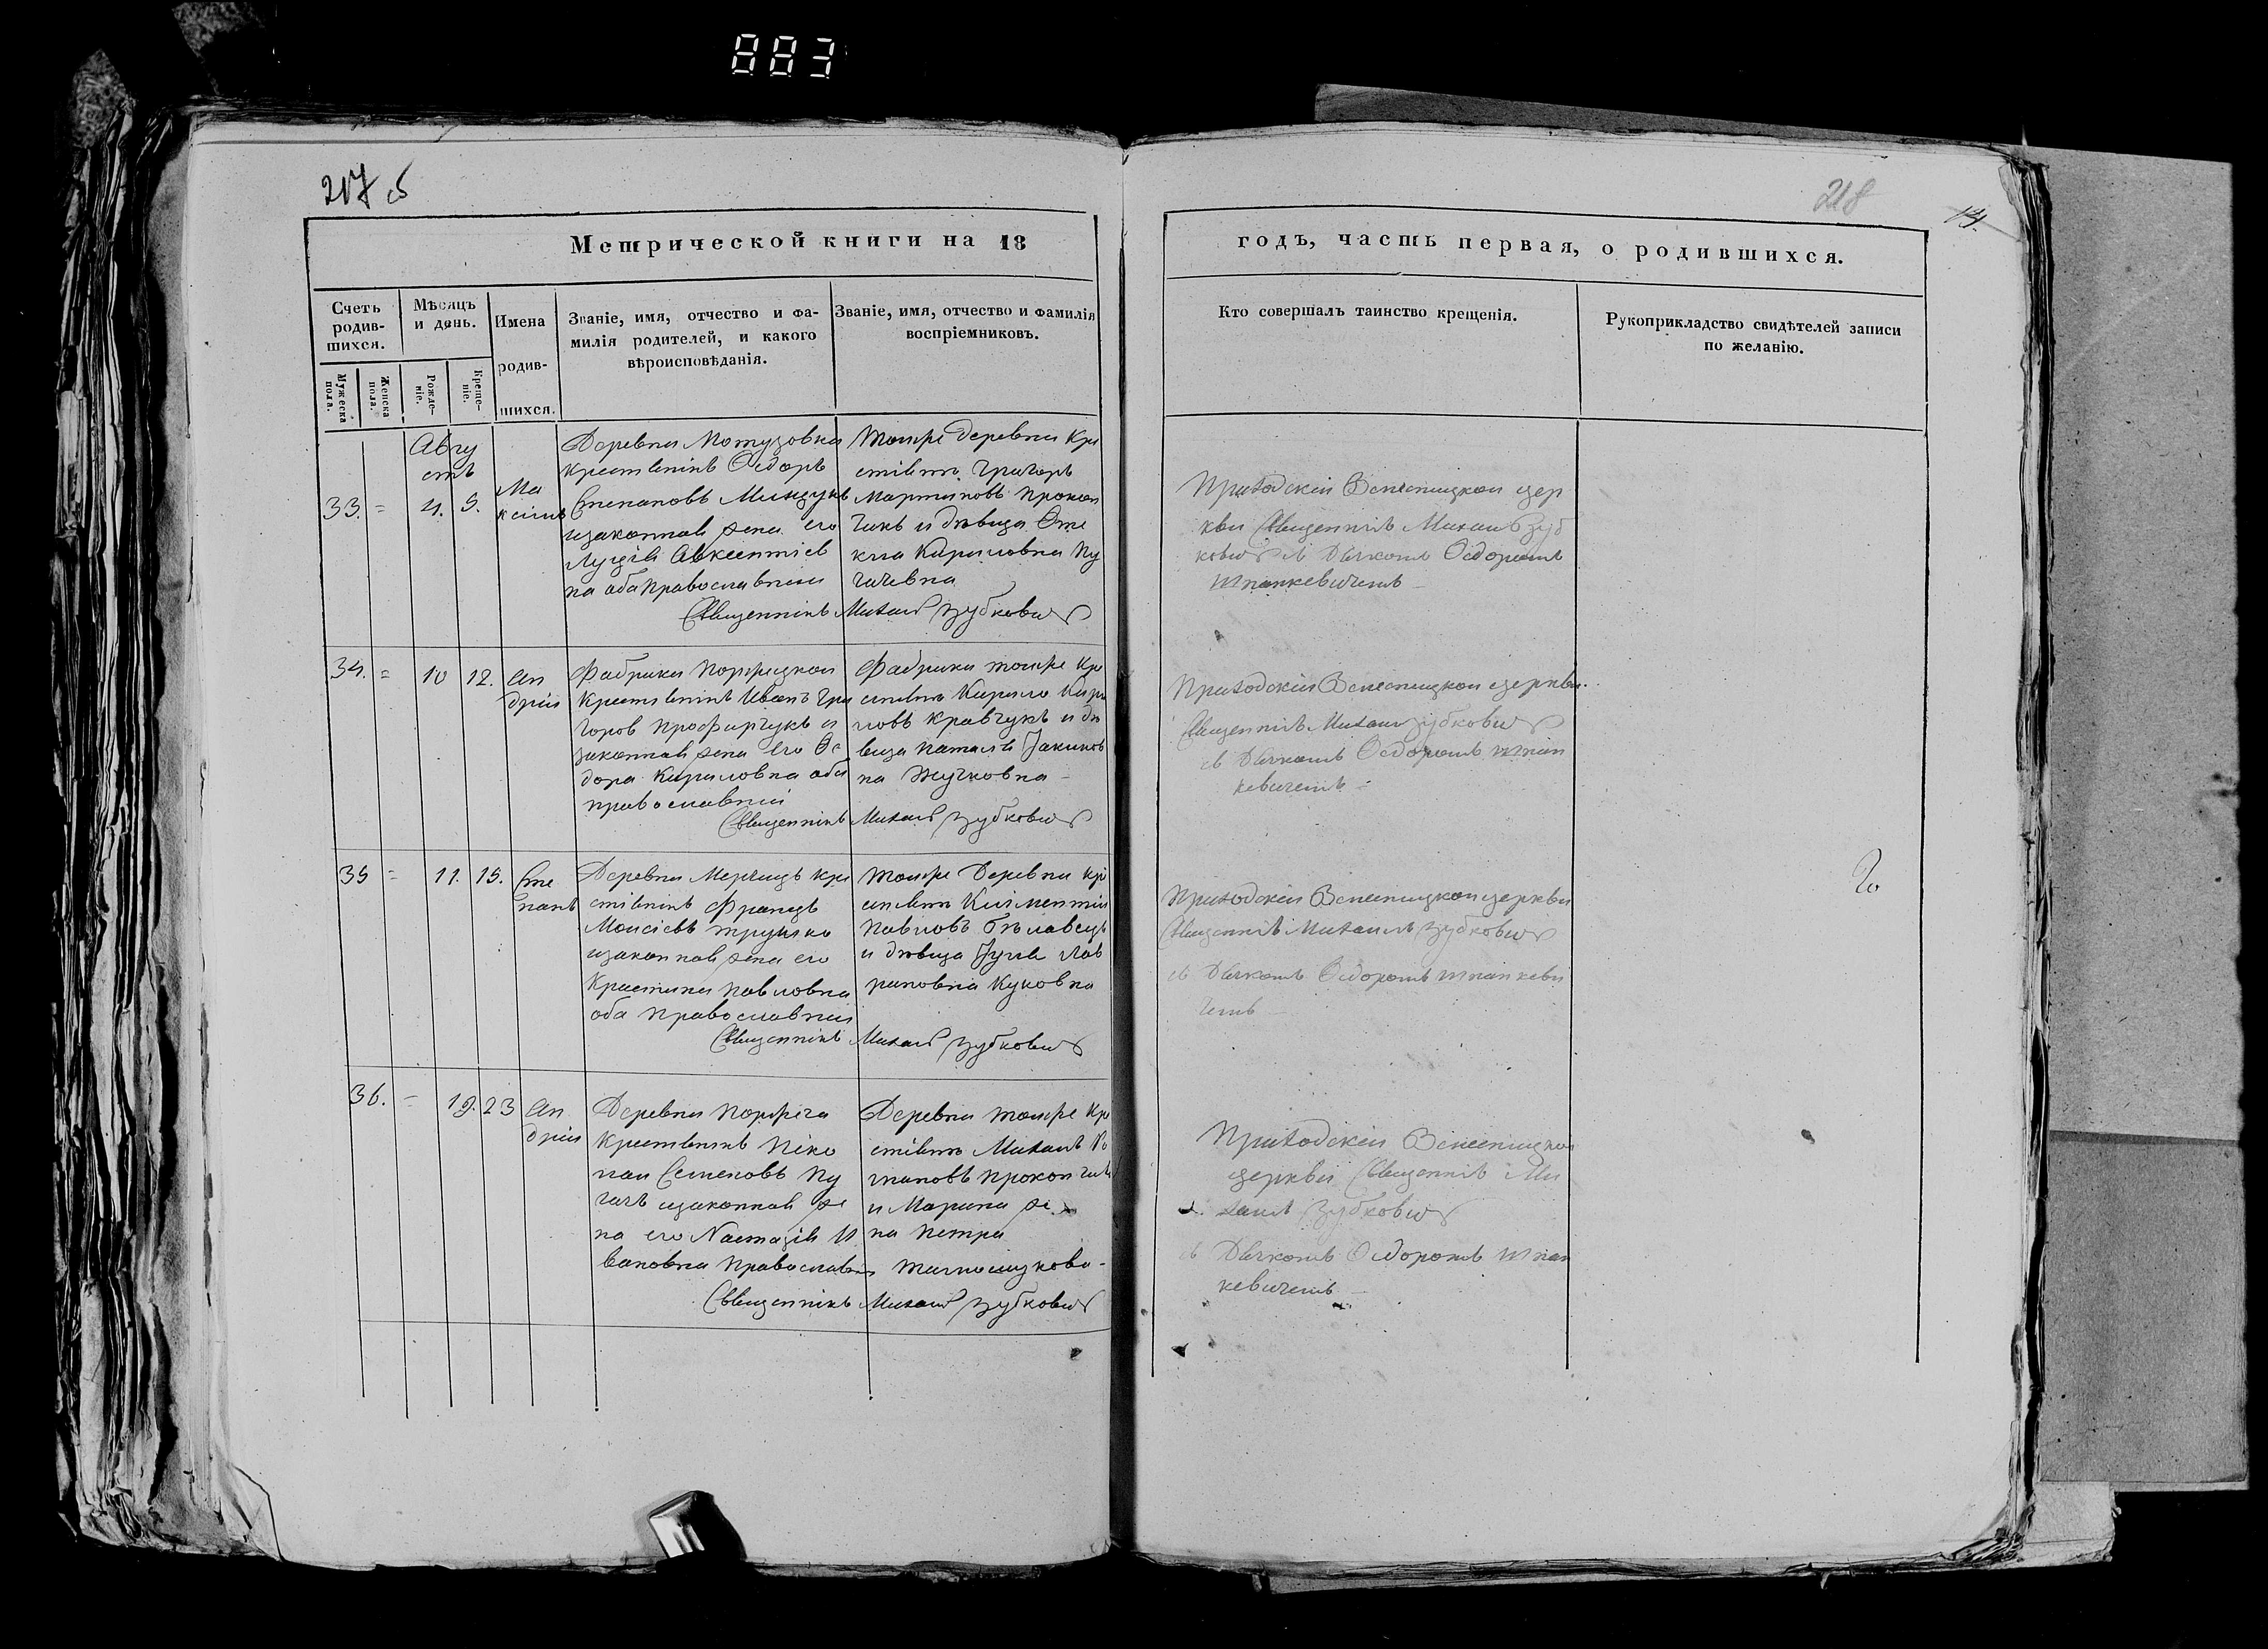 883
217 об
218
14.
Метрической книги на 18
годъ, часть первая, о родившихся.
Счетъ родив-шихся.
Мѣсяцъ и день.
Имена родив-шихся.
Званіе, имя, отчество и фа-
милія родителей, и какого
вѣроисповѣданія.
Званіе, имя, отчество и фамилія
воспріемниковъ.
Мужеска пола.
Женска пола.
Рожде-ніе.
Креще-ніе.
Кто совершалъ таинство крещенія.
Рукоприкладство свидѣтелей записи
по желанію.
Авгу
стъ
33. = 4. 5.
Ма
ксимъ
Деревни Мотузовки
крестянинъ Ѳедоръ
Степановъ
изаконная жена его
Луція Авксентіев
на оба православніи
Тойже деревни кри
стіянъ Григоръ
Мартиновъ Прокоп
чикъ и дѣвица Ѳе
кла Кириловна Пу
гачевна
Священникъ Михаилъ Зубковичъ
Приходскій цер
кви Священникъ Михаилъ Зуб
ковичъ съ Дячкомъ Ѳедоромъ
Шпанкевичемъ
34. = 10 12. Ан
дрій
Фабрики
крестянинъ Иванъ Гри
горов и
законная жена его Ѳе
дора Кириловна оба
православніи
Фабрики тойже кре
стянъ Кирило Кири
ловъ Кравчукъ и дѣ
вица Наталія Якимов
на Жучковна
Священникъ Михаилъ Зубковичъ
Приходскій церкви
Священникъ Михаилъ Зубковичъ
съ Дячкомъ Ѳедоромъ Шпан
кевичемъ
35 = 11. 15. Сте
панъ
Деревни кри
стіянинъ Францъ
Моисіевъ
изаконная жена его
Кристина Павловна
оба православніи
Тойже Деревни кри
стянъ Климентій
Павловъ Бѣлавецъ
и дѣвица Юлія Лав
риновна Куковна
Священникъ Михаилъ Зубковичъ
Приходскій церкви
Священникъ Михаилъ Зубковичъ
съ Дячкомъ Ѳедоромъ Шпанкеви
чемъ
36. = 19. 23 Ан
дрій
Деревни
крестянинъ Нико
лай Семеновъ Пу
гачъ изаконная же
на его Настазія И
вановна православніи
Деревни тойже кри
стіянъ Михаилъ Ро
мановъ Прокопчикъ
и Марина же
на Петра
Священникъ Михаилъ Зубковичъ
Приходскій
церкви Священникъ Ми
хаилъ Зубковичъ
съ Дячкомъ Ѳедоромъ Шпан
кевичемъ